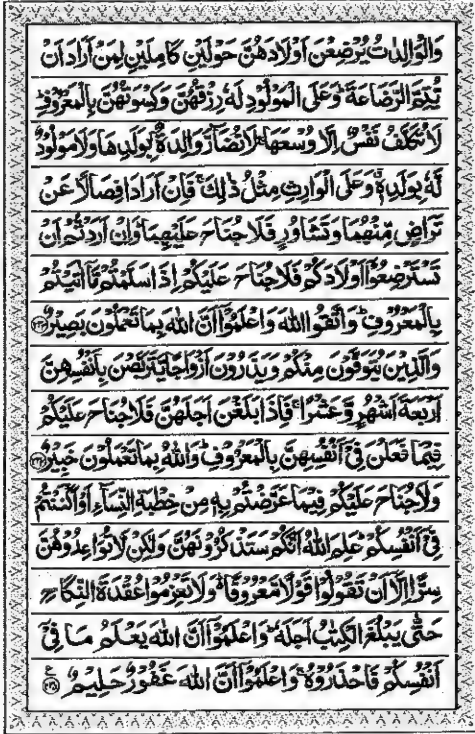 وَالْوَالِدٰتُ يُرْضِعْنَ اَوْلَادَهُنَّ حَوْلَيْنِ كَامِلَيْنِ لِمَنْ اَرَادَ اَنْ
يُّتِمَّ الرَّضَاعَةَ ؕ وَعَلَى الْمَوْلُوْدِ لَهٗ رِزْقُهُنَّ وَكِسْوَتُهُنَّ بِالْمَعْرُوْفِ ؕ
لَا تُكَلَّفُ نَفْسٌ اِلَّا وُسْعَهَا ۚ لَا تُضَآرَّ وَالِدَةٌۢ بِوَلَدِهَا وَلَا مَوْلُوْدٌ
لَّهٗ بِوَلَدِهٖ ۗ وَعَلَى الْوَارِثِ مِثْلُ ذٰلِكَ ۚ فَاِنْ اَرَادَا فِصَالًا عَنْ
تَرَاضٍ مِّنْهُمَا وَتَشَاوُرٍ فَلَا جُنَاحَ عَلَيْهِمَا ؕ وَاِنْ اَرَدْتُّمْ اَنْ
تَسْتَرْضِعُوْۤا اَوْلَادَكُمْ فَلَا جُنَاحَ عَلَيْكُمْ اِذَا سَلَّمْتُمْ مَّاۤ اٰتَيْتُمْ
بِالْمَعْرُوْفِ ؕ وَاتَّقُوا اللّٰهَ وَاعْلَمُوْۤا اَنَّ اللّٰهَ بِمَا تَعْمَلُوْنَ بَصِيْرٌ ﴿۲۳۳﴾
وَالَّذِيْنَ يُتَوَفَّوْنَ مِنْكُمْ وَيَذَرُوْنَ اَزْوَاجًا يَّتَرَبَّصْنَ بِاَنْفُسِهِنَّ
اَرْبَعَةَ اَشْهُرٍ وَّعَشْرًا ۚ فَاِذَا بَلَغْنَ اَجَلَهُنَّ فَلَا جُنَاحَ عَلَيْكُمْ
فِيْمَا فَعَلْنَ فِيْۤ اَنْفُسِهِنَّ بِالْمَعْرُوْفِ ؕ وَاللّٰهُ بِمَا تَعْمَلُوْنَ خَبِيْرٌ ﴿۲۳۴﴾
وَلَا جُنَاحَ عَلَيْكُمْ فِيْمَا عَرَّضْتُمْ بِهٖ مِنْ خِطْبَةِ النِّسَآءِ اَوْ اَكْنَنْتُمْ
فِيْۤ اَنْفُسِكُمْ ؕ عَلِمَ اللّٰهُ اَنَّكُمْ سَتَذْكُرُوْنَهُنَّ وَلٰكِنْ لَّا تُوَاعِدُوْهُنَّ
سِرًّا اِلَّاۤ اَنْ تَقُوْلُوْا قَوْلًا مَّعْرُوْفًا ۬ؕ وَلَا تَعْزِمُوْا عُقْدَةَ النِّكَاحِ
حَتّٰى يَبْلُغَ الْكِتٰبُ اَجَلَهٗ ؕ وَاعْلَمُوْۤا اَنَّ اللّٰهَ يَعْلَمُ مَا فِيْۤ
اَنْفُسِكُمْ فَاحْذَرُوْهُ ۚ وَاعْلَمُوْۤا اَنَّ اللّٰهَ غَفُوْرٌ حَلِيْمٌ ﴿۲۳۵﴾